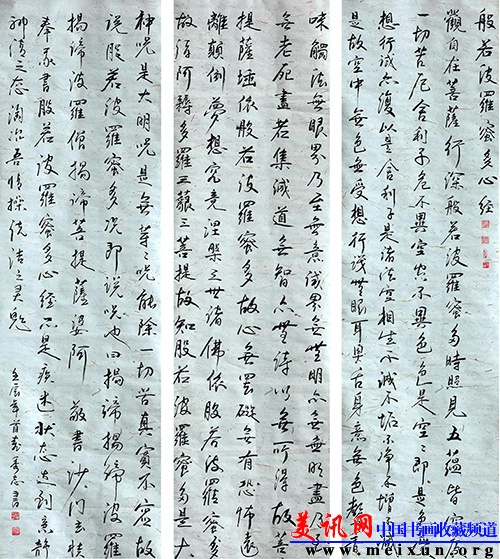 般若波羅蜜多心經
觀自在菩薩行深般若波羅蜜多時照見五蘊皆空度
一切苦厄舍利子色不異空空不異色色即是空空即是色受
想行識亦復如是舍利子是諸法空相生不滅不垢不淨不增減
是故空中無色無受想行識無眼耳鼻舌身意無色聲香
味觸法無眼界乃至無意識界無無明亦無無明盡乃至
無老死盡苦集滅道無智亦無得以無所得故菩
提薩埵依般若波羅蜜多故心無罣礙無有恐怖遠
離顛倒夢想究竟涅槃三世諸佛依般若波羅蜜多
故得阿耨多羅三藐三菩提故知般若波羅蜜多是大
神咒是大明咒是無等等咒能除一切苦真實不虛故
說般若波羅蜜多咒即說咒也曰揭諦揭諦波羅
揭諦波羅僧揭諦菩提薩婆阿 敬書沙門玄奘
書般若波羅蜜多心經是疾速状态达到意静
神清之态陶冶其情操
壬辰年首
美讯网 中国书画收藏频道
www.meixun.org